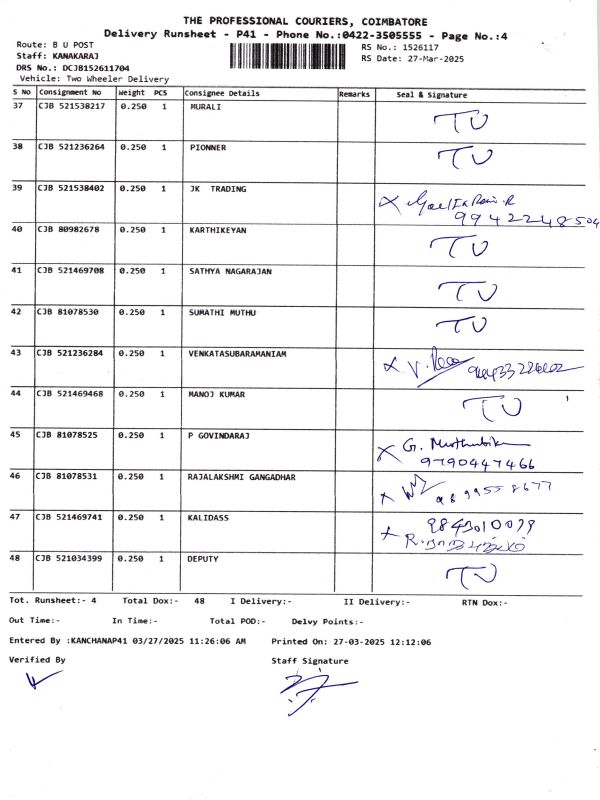 THE PROFESSIONAL COURIERS, COIMBATORE
Delivery Runsheet - P41 - Phone No.:0422-3505555 - Page No.:4
Route: B U POST
RS No.: 1526117
Staff: KANAKARAJ
RS Date: 27-Mar-2025
DRS No.: DCJB152611704
Vehicle: Two Wheeler Delivery
S No Consignment No Weight PCS Consignee Details Remarks Seal & Signature
37 CJB 521538217 0.250 1 MURALI TU
38 CJB 521236264 0.250 1 PIONNER TU
39 CJB 521538402 0.250 1 JK TRADING
9942248504
40 CJB 80982678 0.250 1 KARTHIKEYAN TU
41 CJB 521469708 0.250 1 SATHYA NAGARAJAN TU
42 CJB 81078530 0.250 1 SUMATHI MUTHU TU
43 CJB 521236284 0.250 1 VENKATASUBARAMANIAM
44 CJB 521469468 0.250 1 MANOJ KUMAR TU
45 CJB 81078525 0.250 1 P GOVINDARAJ
9790447466
46 CJB 81078531 0.250 1 RAJALAKSHMI GANGADHAR 9899558677
47 CJB 521469741 0.250 1 KALIDASS
48 CJB 521034399 0.250 1 DEPUTY TU
Tot. Runsheet:- 4 Total Dox:- 48 I Delivery:- II Delivery:- RTN Dox:-
Out Time:- In Time:- Total POD:- Delvy Points:-
Entered By :KANCHANAP41 03/27/2025 11:26:06 AM Printed On: 27-03-2025 12:12:06
Verified By Staff Signature